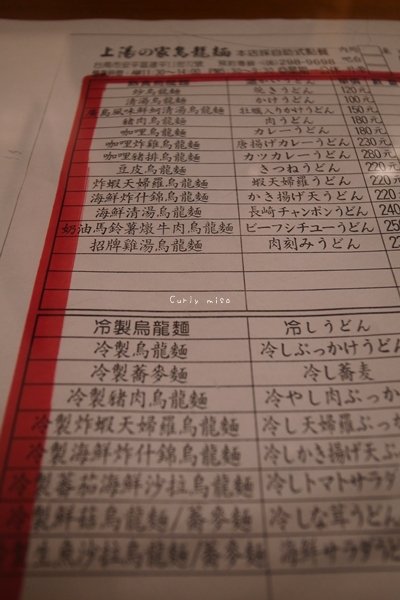 上湯の家烏龍麵 本店採自助式點餐
298-9698
炒烏龍麵 焼きうどん 120元
清湯烏龍麵 かけうどん 100元
廣島風味鮮蚵清湯烏龍麵 牡蠣入りかけうどん 150元
豬肉烏龍麵 肉うどん 180元
咖哩烏龍麵 カレーうどん 180元
咖哩炸雞烏龍麵 唐揚げカレーうどん 230元
咖哩豬排烏龍麵 カツカレーうどん 280元
豆皮烏龍麵 きつねうどん 220元
炸蝦天婦羅烏龍麵 蝦天婦羅うどん 220元
海鮮炸什錦烏龍麵 かき揚げ天うどん 220
海鮮清湯烏龍麵 長崎チャンポンうどん 240
奶油馬鈴薯燉牛肉烏龍麵 ビーフシチューうどん 25
招牌雞湯烏龍麵 肉刻みうどん 2
Curly miso
冷製烏龍麵 冷しうどん
冷製烏龍麵 冷しぶっかけうどん
冷製蕎麥麵 冷し蕎麦
冷製豬肉烏龍麵 冷やし肉ぶっか
冷製炸蝦天婦羅烏龍麵 冷し天婦羅ぶっか
冷製海鮮炸什錦烏龍麵 冷しかき揚げ天ぶ
冷製蕃茄海鮮沙拉烏龍麵 冷しトマトサラダ
冷製鮮菇烏龍麵/蕎麥麵 冷しな茸うどん
製生魚沙拉烏龍麵/蕎麥麵 海鮮サラダうど